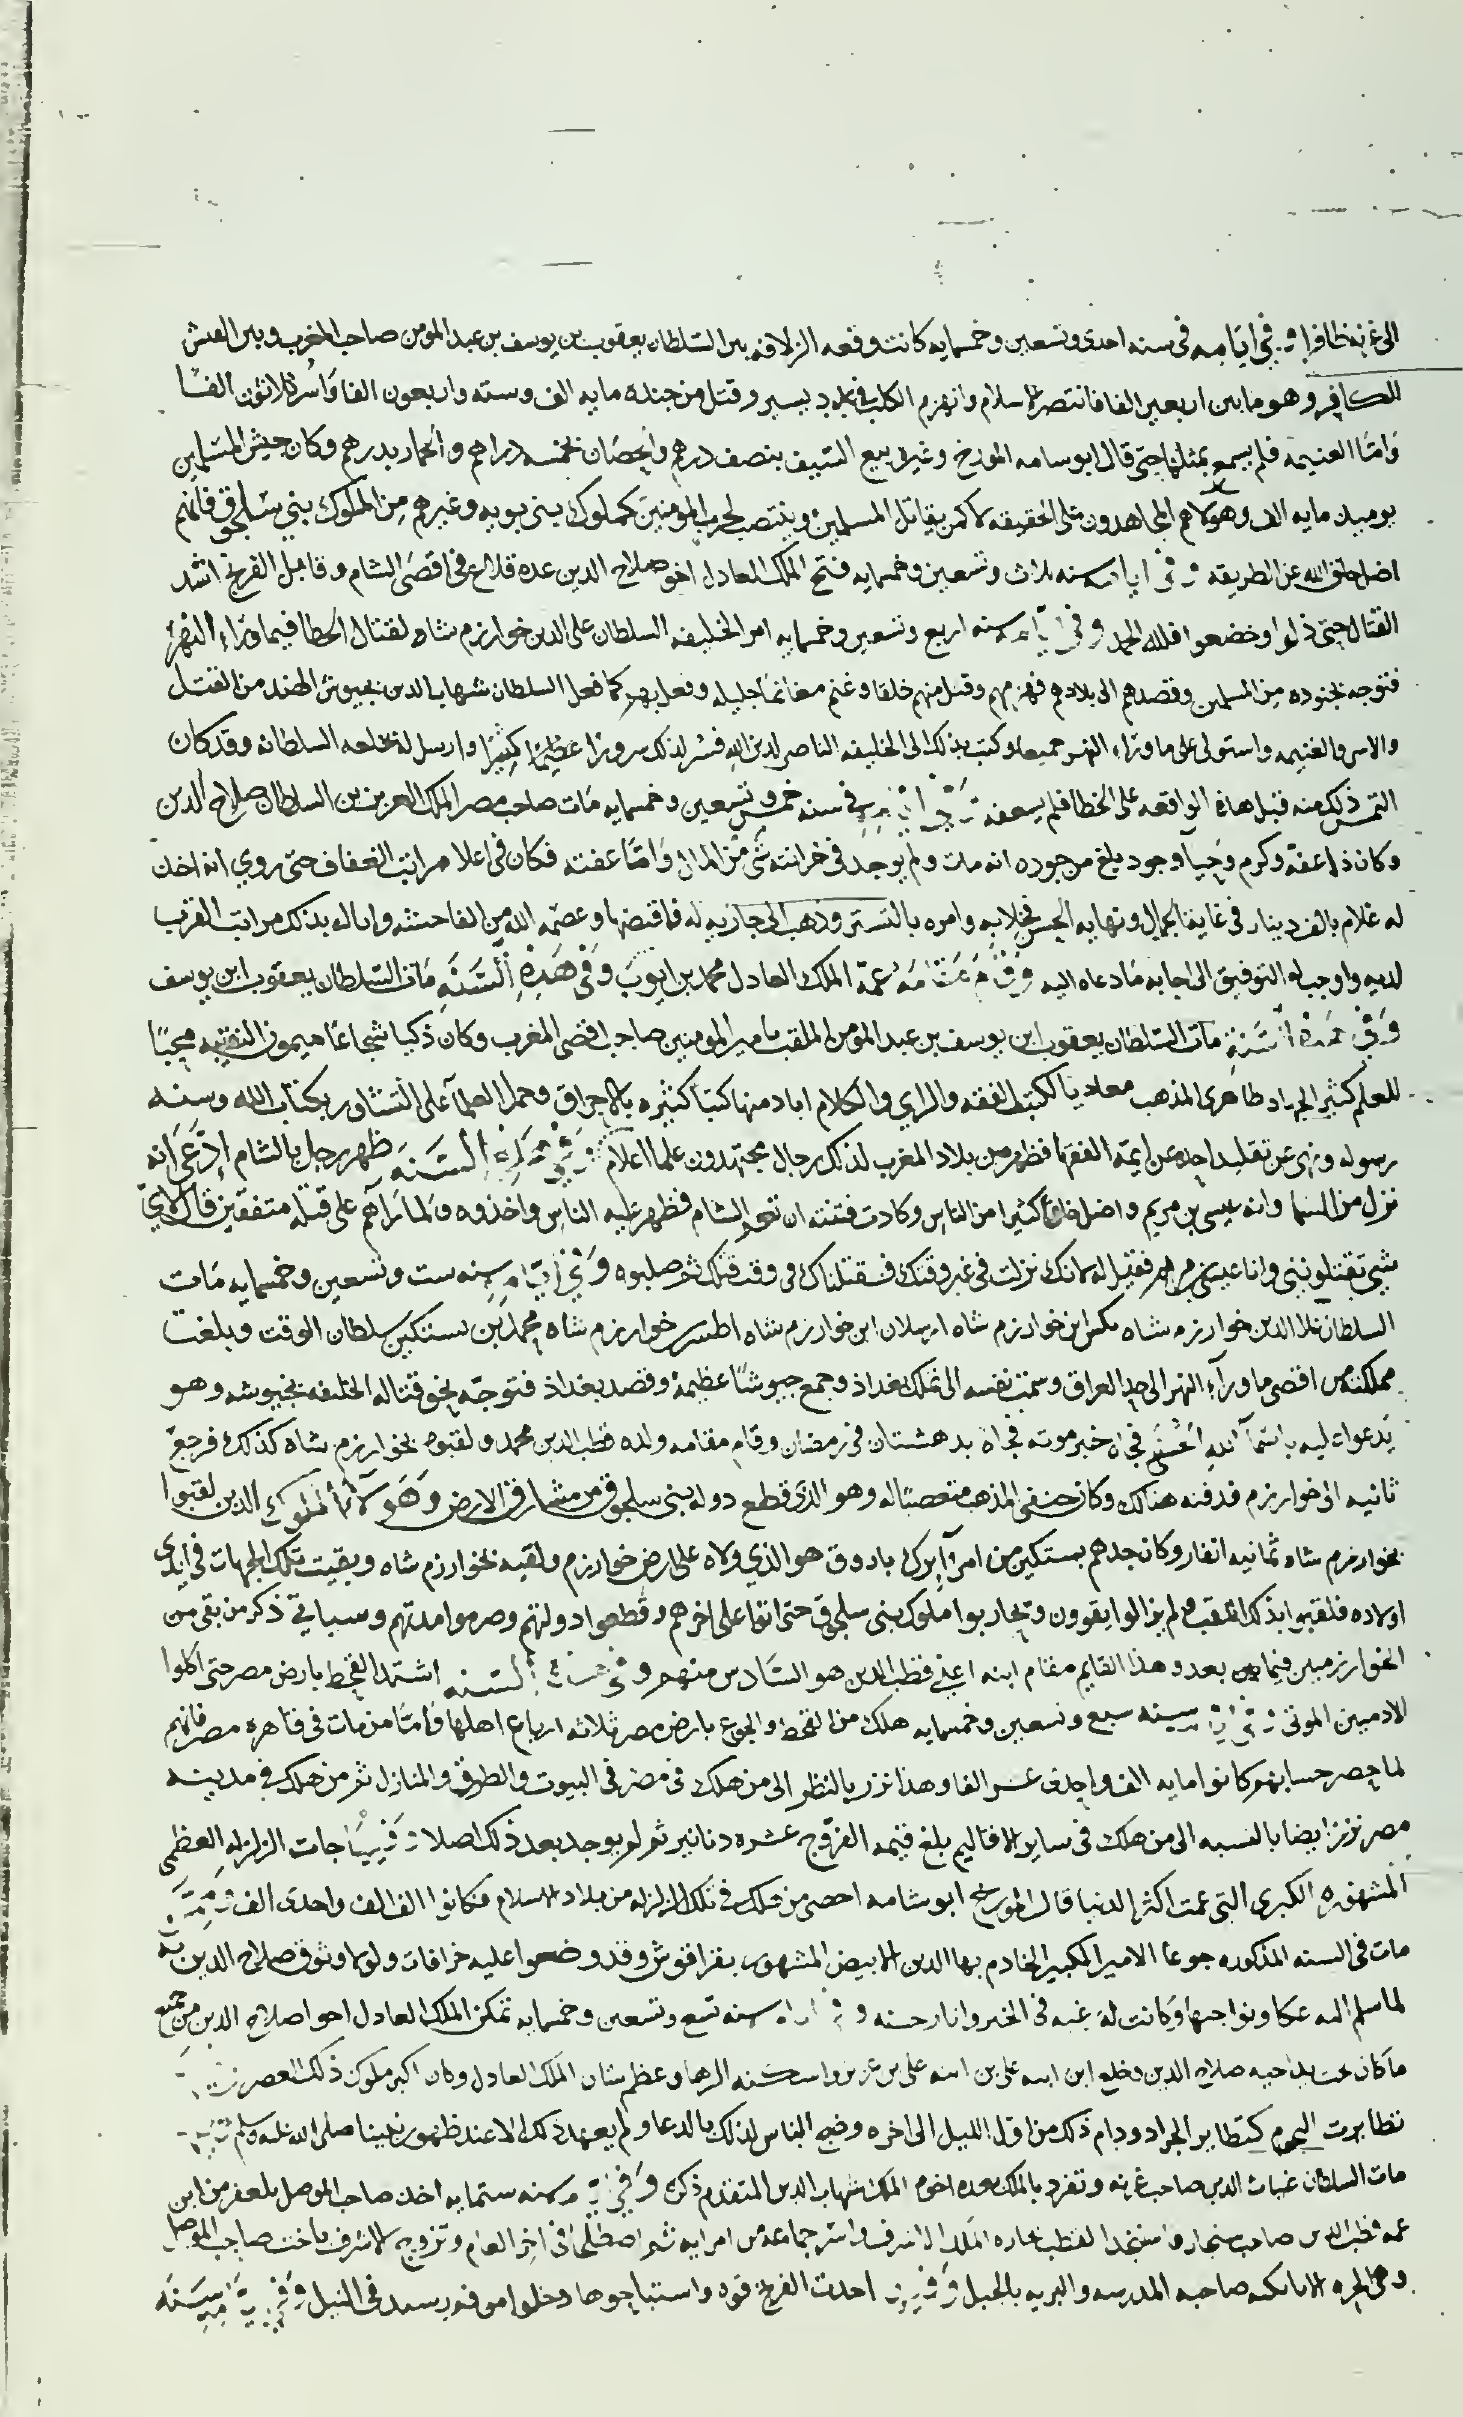 الى غزنه ظافرا وفي ايامه في سنه احدى وتسعين وخمسمايه كانت وقعه الزلاقه بين السلطان يعقوب بن يوسف بن عبد المومن صاحب المغرب وبين الفنش
الكافر وهو مابين اربعين الفا فانتصر الاسلام وانهزم الكلب في يسير وقتل من جنده مايه الف وسته واربعون الفا واسر ثلاثون الفا
وامّا الغنيمه فلم يسمع بمثلها حتى قال ابو سامه المورخ وغيره بيع السيف بنصف درهم والحصان بخمسه دراهم والحمار بدرهم وكان جيش المسلمين
يوميذ مايه الف وهولاهم المجاهدون على الحقيقه لا كمن يقاتل المسلمين وينتصب لحرب المومنين كملوك بني بويه وغيرهم من الملوك بني سلجوق فانهم
اضل خلق الله عن الطريقه وفي ايامه سنه ثلاث وتسعين وخمسمايه فتح الملك العادل اخو صلاح الدين عده قلاع في اقصى الشام وقاتل الفرنج اشد
القتال حتى ذلوا وخضعوا فلله الحمد وفي ايامه سنه اربع وتسعين وخمسمايه امر الخليفه السلطان على الدين خوارزم شاه لقتال الخطا فيما وراء النهر
فتوجه بجنوده من المسلمين وقصدهم الى بلادهم فهزمهم وقتل منهم خلقا وغنم مغانما جليله وفعل بهم كما فعل السلطان شهاب الدين بجيوش الهند من القتل
والاسر والغنيمه واستولى على ما وراء النهر جميعا وكتب بذلك الى الخليفه الناصر لدين الله فسر لذلك سرورا عظيما كثيرا وارسل له بخلعه السلطانه وقد كان
التمس ذلك منه قبل هذه الواقعه على الخطا فلم يسعفه وفي ايامه في سنه خمس وتسعين وخمسمايه مات صاحب مصر الملك العزيز بن السلطان صلاح الدين
وكان ذا عفه وكرم وحيا وجود بلغ من جوده انه مات ولم يوجد في خزانته شي من المال وامّا عفته فكان في اعلا مراتب العفاف حتى روي انه اخذ
له غلام بالف دينار في غايه الجمال ونهايه الحسن فخلا به وامره بالتستر وذهب الى جاريه له فاقتضها وعصمه الله من الفاحشه واناله بذلك مراتب القرب
لديه واوجب له التوفيق الى اجابه مادعاه اليه وقام مقامه عمّه الملك العادل محمد بن ايوب وفي هذه السنه مات السلطان يعقوب ابن يوسف
وفي هذه السنه مات السلطان يعقوب ابن يوسف بن عبد المومن الملقب بامير المومنين صاحب اقصى المغرب وكان ذكيا شجاعا ميمون النقيبه محبّا
للعلم كثير الجهاد ظاهري المذهب معاديا لكتب الفقه والراي والكلام اباد منها كتبا كثيره بالاحراق وحمل العلمآ على التشاور بكتاب الله وسنه
رسوله ونهى عن تقليد احد من ايمه الفقها فظهر من بلاد المغرب لذلك رجال مجتهدون علما اعلام وفي هذه السنه ظهر رجل بالشام ادّعى انه
نزل من السما وانه عيسى بن مريم واضل خلقا كثيرا من الناس وكادت فتنته ان تعم الشام فظهر عليه الناس واخذوه ولما راهم على قتله متفقين قال لاي
شي تقتلونني وانا عيسى بن مريم فقيل له لانك نزلت في غير وقتك فقتلناك في وقت قتلك ثم صلبوه وفي ايامه سنه ست وتسعين وخمسمايه مات
السلطان علا الدين خوارزم شاه تكش ابن خوارزم شاه ارسلان ابن خوارزم شاه اطسز خوارزم شاه محمد بن بستكين سلطان الوقت وبلغت
مملكته من اقصى ماورآء النهر الى حد العراق وسمت نفسه الى تملك بغداذ وجمع جيوشًا عظيمة وقصد بغداذ فتوجّه نحو قتاله الخليفه بجيوشه وهو
يدعوا عليه باسمآ الله الحسنى فجاه خبر موته فجاة بدهستان في رمضان وقام مقامه ولده قطب الدين محمد ولقبوه بخوارزم شاه كذلك فرجع
ثانيه الى خوارزم فدفنه هنالك وكان حنفي المذهب متعصبا له وهو الذي قطع دوله بني سلجوق من مشارق الارض وهولآ الملوك الذين لقبوا
بخوارزم شاه ثمانيه انفار وكان جدهم بستكين من امرآ بركيا روق هو الذي ولاه على ارض خوارزم ولقبه بخوارزم شاه وبقيت تلك الجهات في ايدي
اولاده فلقبوا بذلك اللقب ولم يزالوا يقوون وتحاربوا ملوك بني سلجوق حتى اتوا على اخرهم وقطعوا دولتهم وصرموا مدتهم وسياتي ذكر من بقي من
الخوارزميين فيما بعد وهذا القايم مقام ابنه اعني قطب الدين هو السّادس منهم وفي هذه السنه اشتد القحط بارض مصر حتى اكلوا
الادميين الموتى وفي ايامه سنه سبع وتسعين وخمسمايه هلك من القحط والجوع بارض مصر ثلاثه ارباع اهلها وامّا من مات في قاهرة مصر فانهم
لما حصر حسابهم كانوا مايه الف واحدى عشر الفا وهذا نزر بالنظر الى من هلك في مصر في البيوت والطرق والمنازل ثم من هلك في مدينه
مصر نزر ايضا بالنسبه الى من هلك في ساير الاقاليم بلغ قيمه الفرّوج عشره دنانير ثم لم يوجد بعد ذلك اصلا وفيها جات الزلزله العظمى
المشهوره الكبرى التي عمت اكثر الدنيا قال المورخ ابو شامه احصى من هلك في تلك الزلزله من بلاد الاسلام فكانوا الف الف واحدى الف
مات في السنه المذكوره جوعا الامير الكبير الخادم بها الدين الابيض المشهور بقراقوش وقد وضعوا عليه خرافات ولولا وثوق صلاح الدين به
لما سلم اليه عكا ونواحيها وكانت له رغبه في الخير واثار حسنه وفي ايامه سنه تسع وتسعين وخمسمايه تمكن الملك العادل اخو اصلاح الدين من جميع
ما كان تحت يد اخيه صلاح الدين وخلع ابن ابنه علي بن عزيز واسكنه الرها وعظم شان الملك العادل وكان اكبر ملوك ذلك العصر
تطايرت النجوم كتطاير الجراد ودام ذلك من اول الليل الى اخره وضج الناس لذلك بالدعا ولم يعهد ذلك الا عند ظهور نبينا صلى الله عليه وسلم
مات السلطان غياث الدين صاحب غزنه وتفرد بالملك بعده اخوه الملك شهاب الدين المتقدم ذكره وفي ايامه سنه ستمايه اخذ صاحب الموصل تلعفر من ابن
عمه قطب الدين صاحب سنجار واستنجد القطب بجاره الملك الاشرف واسر جماعه من امرايه ثم اصطلحا في اخر العام وتزوج الاشرف باخت صاحب الموصل
وهي الجهه الاتابكيه صاحبه المدرسه والتربه بالجبل وفيها اخذت الفرنج فوه واستباحوها دخلوا من فم رسيد في النيل وفي ايامه سنه